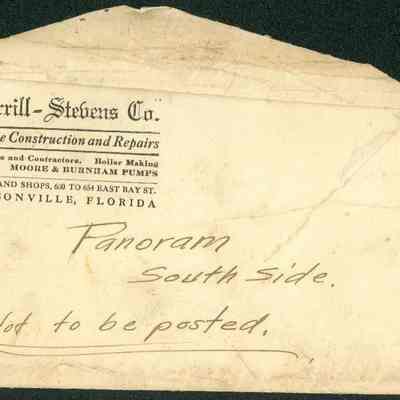 rrill-Stevens Co.
e Construction and Repairs
s and Contractors. Boiler Making
MOORE & BURNHAM PUMPS
AND SHOPS, 600 TO 654 EAST BAY ST.
SONVILLE, FLORIDA
Panoram
South Side.
Not to be posted.